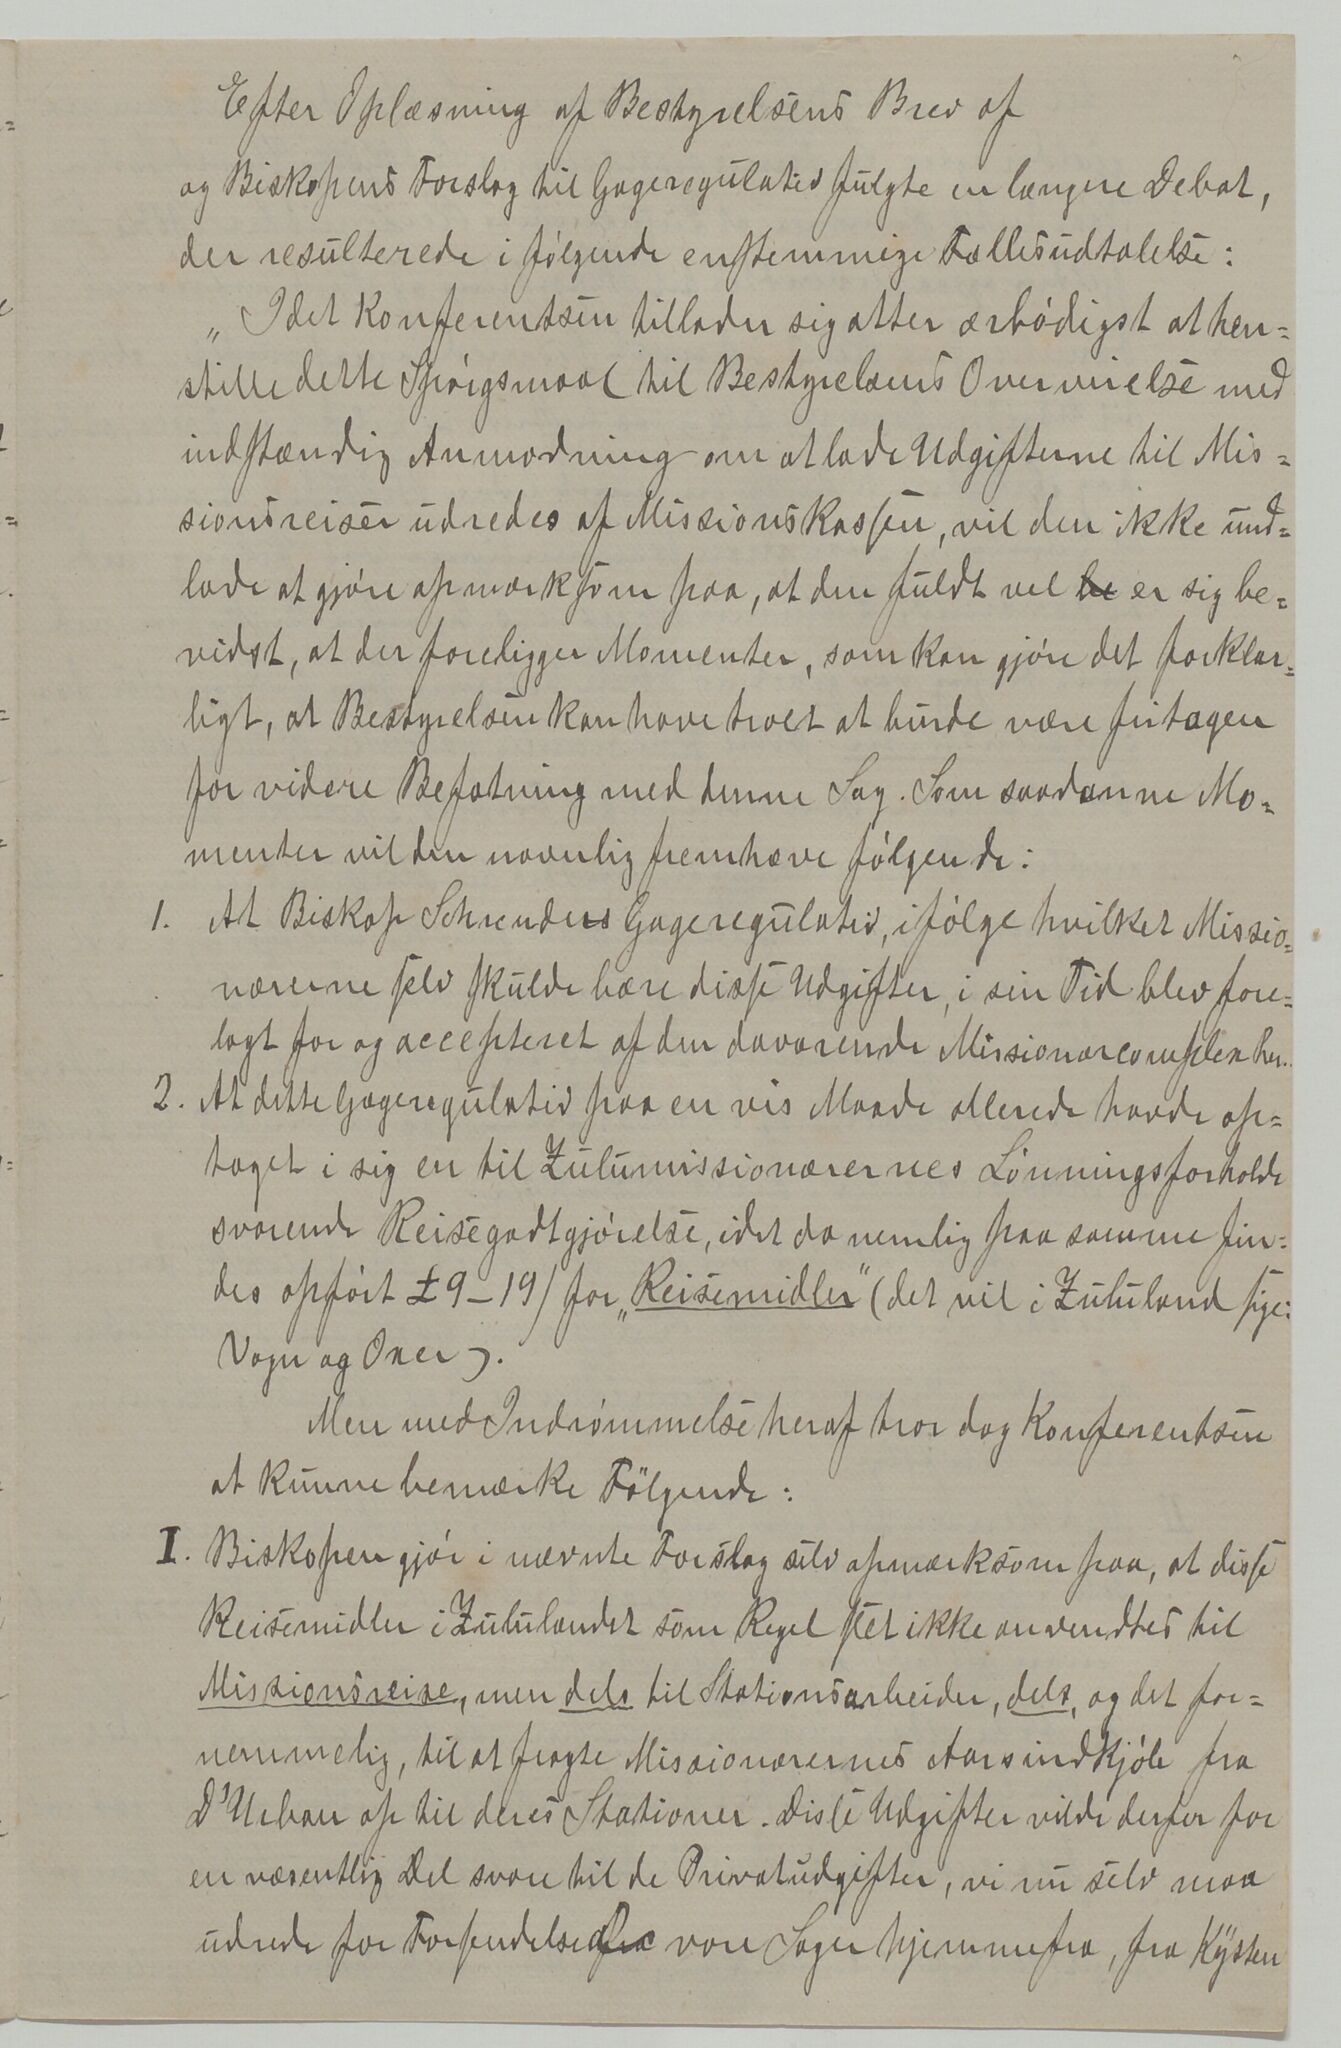 Efter Oplæsning af Bestyrelsens Brev af
og Biskopens Forslag til Gageregulativ fulgte en længere Debat,
der resulterede i følgende enstemmige Fællesudtalelse:
„Idet Konferentsen tillader sig atter ærbødigst at hen=
stille dette Spørgsmaal til Bestyrelsens Overveielse med
indstændig Anmodning om at lade Udgifterne til Mis=
sionsreiser udredes af Missionskassen, vil den ikke und=
lade at gjøre opmærksom paa, at den fuldt vel be er sig be=
vidst, at der foreligger Momenter, som kan gjøre det forklar=
ligt, at Bestyrelsen kan have troet at burde være fritagen
for videre Befatning med denne Sag. Som saadanne Mo=
menter vil den navnlig fremhæve følgende:
1. At Biskop Schreuders Gageregulativ, ifølge hvilket Missio=
nærerne selv skulde bære disse Udgifter, i sin Tid blev fore=
lagt for og accepteret af den daværende Missionærcomplex her.
2. At dette Gageregulativ paa en vis Maade allerede havde op=
taget i sig en til Zulumissionærernes Lønningsforholde
svarende Reisegodtgjørelse, idet da nemlig paa samme fin=
des opført £9-19/ for „Reisemidler" (det vil i Zululand sige:
Vogn og Oxer).
Men med Indrømmelse heraf tror dog Konferentsen
at kunne bemærke Følgende:
I. Biskopen gjør i nævnte Forslag selv opmærksom paa, at disse
Reisemidler i Zululandet som Regel slet ikke anvendtes til
Missionsreise, men dels til Stationsarbeider, dels, og det for=
nemmelig, til at fragte Missionærernes Aarsindkjøb fra
D'Urban op til deres Stationer. Disse Udgifter vilde derfor for
en væsentlig Del svare til de Privatudgifter, vi nu selv maa
udrede for Forsendelse af vore Sager hjemmefra, fra Kysten